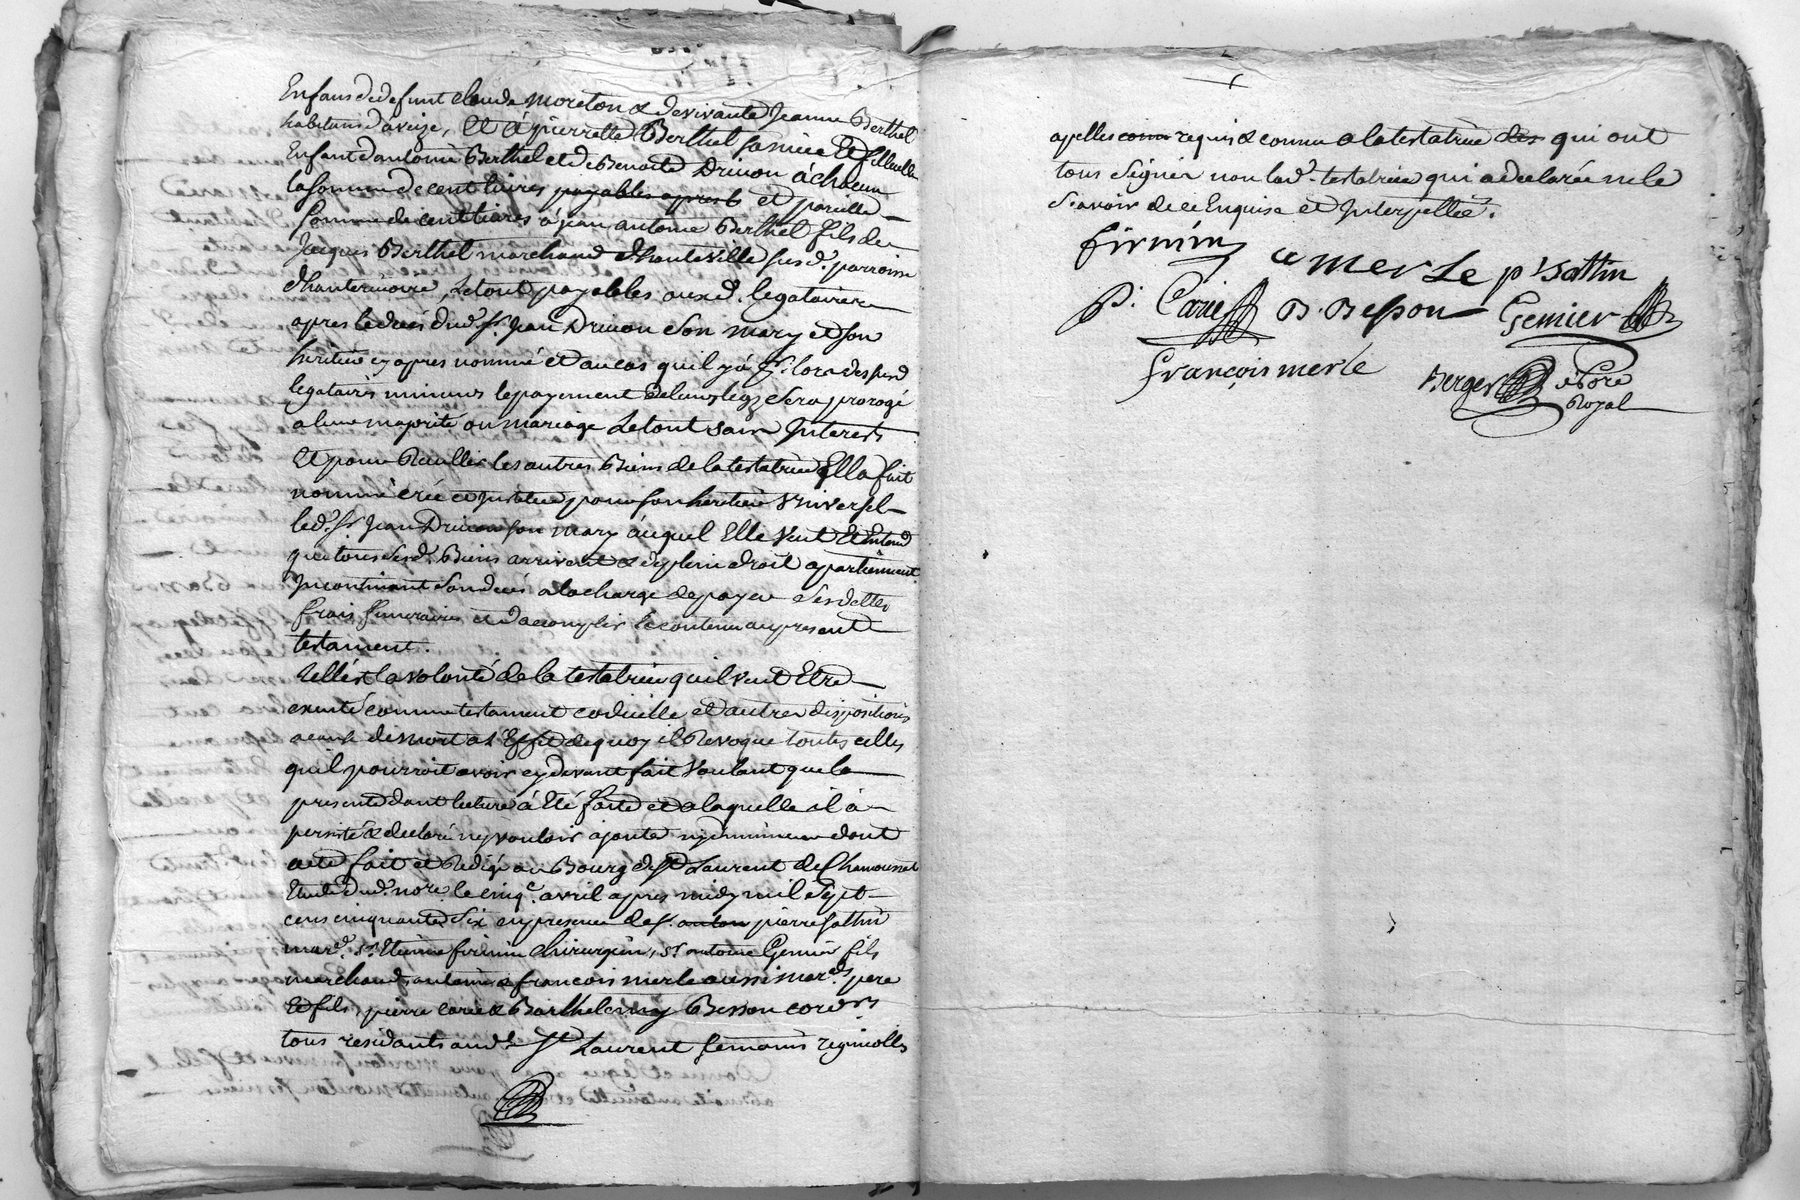 Enfans de defunt claude moreton & de vivante Jeanne Berthel
habitans d'aveize, Et a pierrette Berthel sa niece Et filleulle
Enfant d'antoine Berthel et de Benoite Drivon a chacun
la somme de cent livres payables apres et pareille
somme de cent livres à jean antoine Berthel fils de
Jacques Berthel marchand d'hauteville susd. parroisse
d'hauterivoire, Le tout payables auxd. legataires
apres le decés dud. sr. Jean Drivon son mary et son
heritier cy apres nommé et au cas quil y a lors des
legataires mineurs le payement de leurs legs sera prorogé
a leur majorité ou mariage Le tout sans Interests
Et pour Reuillir les autres Biens de la testatrice Elle a fait
nommé créé et institué pour son heritier Universel
led. sr. Jean Drivon son mary auquel Elle veut Et Entend
que tous sesd. Biens arrivent & de plein droit apartiennent
Incontinant son deces a la charge de payer ses dettes
frais funeraires et d'accomplir le contenu au present
testament.
Telle est la volonté de la testatrice qu'il veut Etre
executé comme testament codicille et autres dispositions
a cause de mort a l'Effet de quoy il Revoque toutes celles
quil pourroit avoir cy devant fait Voulant que la
presente dont lecture à Eté faite et a laquelle il à
persisté & declaré ny vouloir ajouter ny diminuer dont
acte fait et Redigé au Bourg de St Laurent de Chamousset
Etude dud. nore. le cinqe. avril apres midy mil sept
cens cinquante six en presence de s. anton pierre sathin
mard. sr. Etienne firmin chirurgien, sr antoine Gemier fils
marchand, antoine & francois merle aussi mards. pere
Et fils, pierre carie & Barthelemy Besson cordrs.
tous residants aud. St Laurent temoins regnicolles
apellés requis & connu a la testatrice des qui ont
tous Signér non lad. testatrice qui a declarée ne le
scavoir de ce Enquise et Interpellée.
firmin
a merle p sathin
p. Carie B. Besson Gemier
françois merle
Berger nore
Royal